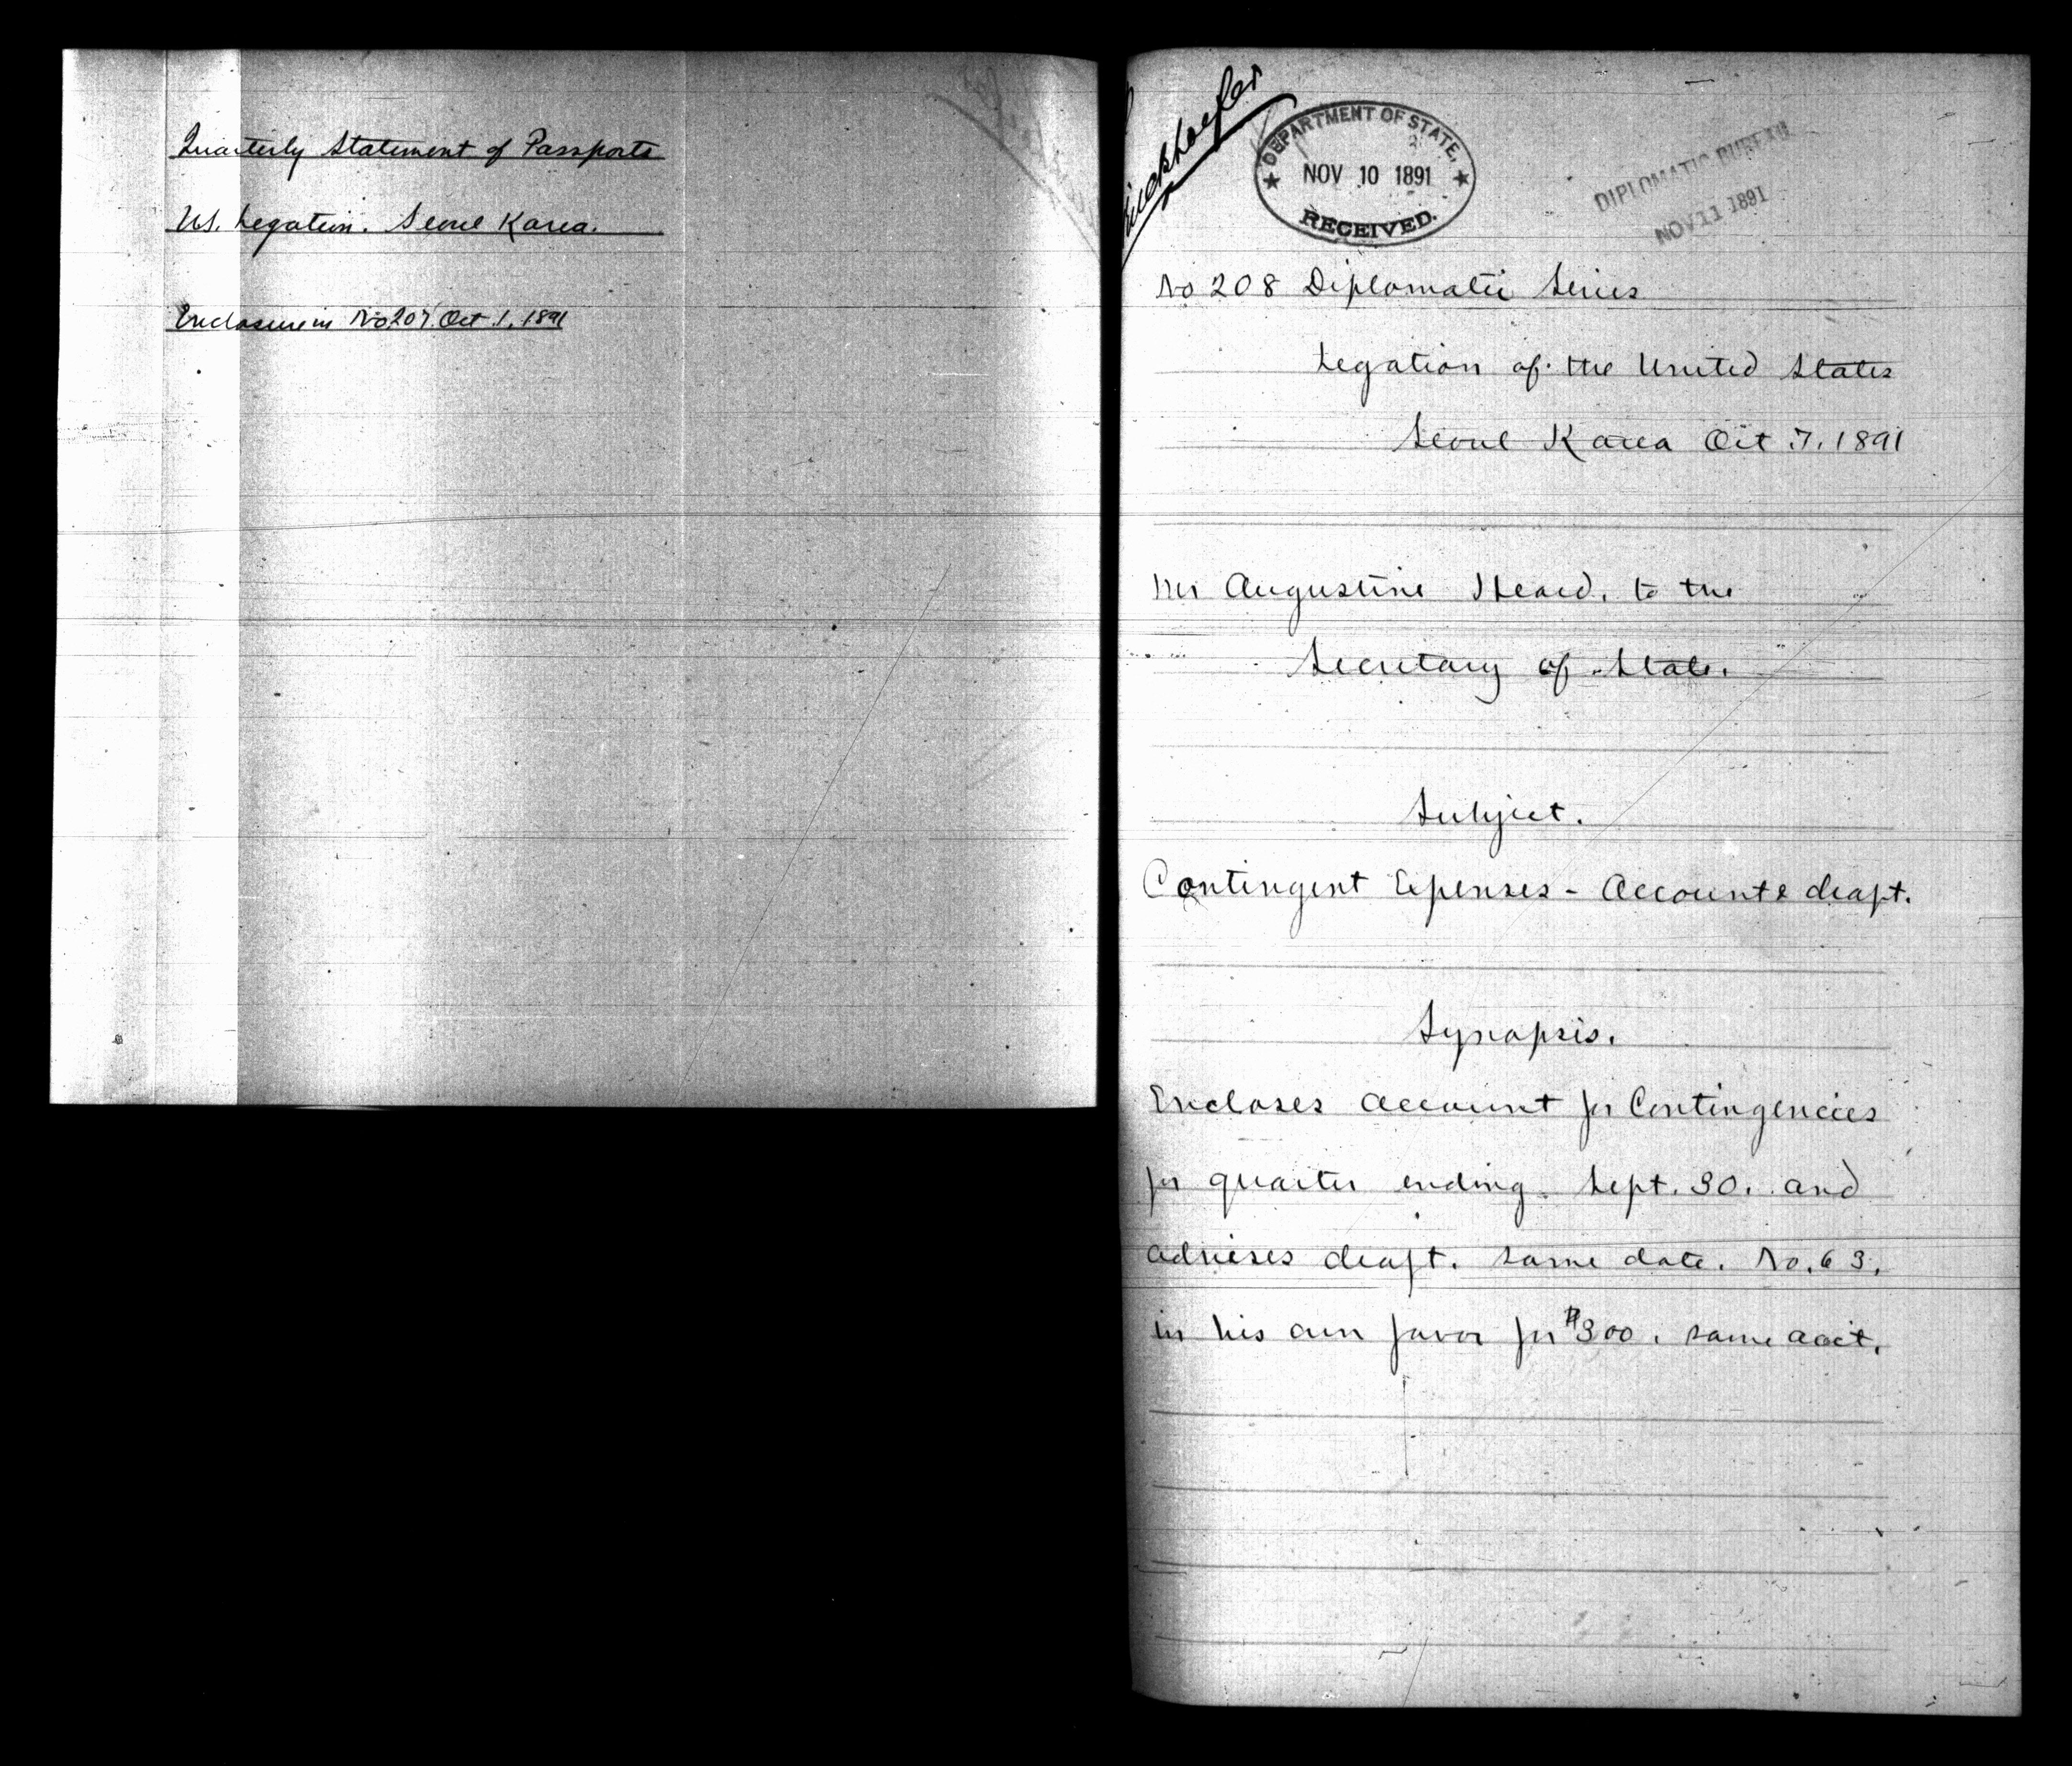 Quarterly Statement of Passports
U.S. Legation. Seoul Korea.
Enclosure in No 207. Oct. 1, 1891
DEPARTMENT OF STATE,
NOV 10 1891
RECEIVED.
DIPLOMATIC BUREAU
NOV 11 1891
No 208 Diplomatic Series
Legation of the United States
Seoul Korea Oct. 7. 1891
Mr Augustine Heard, to the
Secretary of State.
Subject.
Contingent Expenses - Account & draft.
Synopsis.
Encloses account for Contingencies
for quarter ending Sept. 30. and
advises draft. same date. No. 63.
in his own favor for $300. same acct.